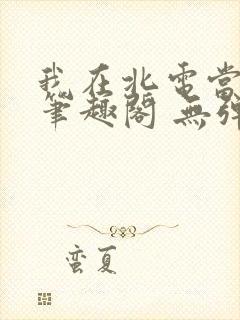 我在北電當
筆趣閣 無彈
蛮夏